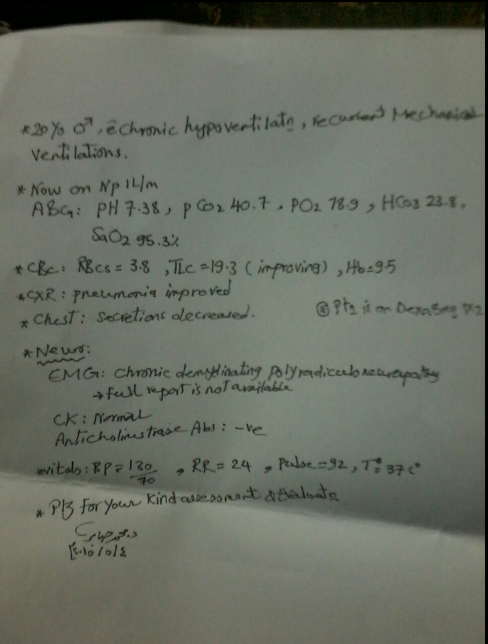 * 20 Y/o ♂, c̄ chronic hypoventilatn, recurrent Mechanical
ventilations.
* Now on Np 1L/m
ABG: PH 7.38, pCo2 40.7, PO2 78.9, HCo3 23.8,
SaO2 95.3%
* CBC: RBCs = 3.8, TLC = 19.3 (improving), Hb=95
* CXR: pneumonia improved
* Chest: Secretions decreased.
Pt is on
* Neuro:
EMG: Chronic demylinating Polyradiculoneuropathy
→ full report is not available
CK: Normal
Anticholinstrase Abs: -ve
vitals: BP = 130/70, RR = 24, Pulse = 92, T° = 37 c°
* Plz For Your Kind assessment & Evaluatn